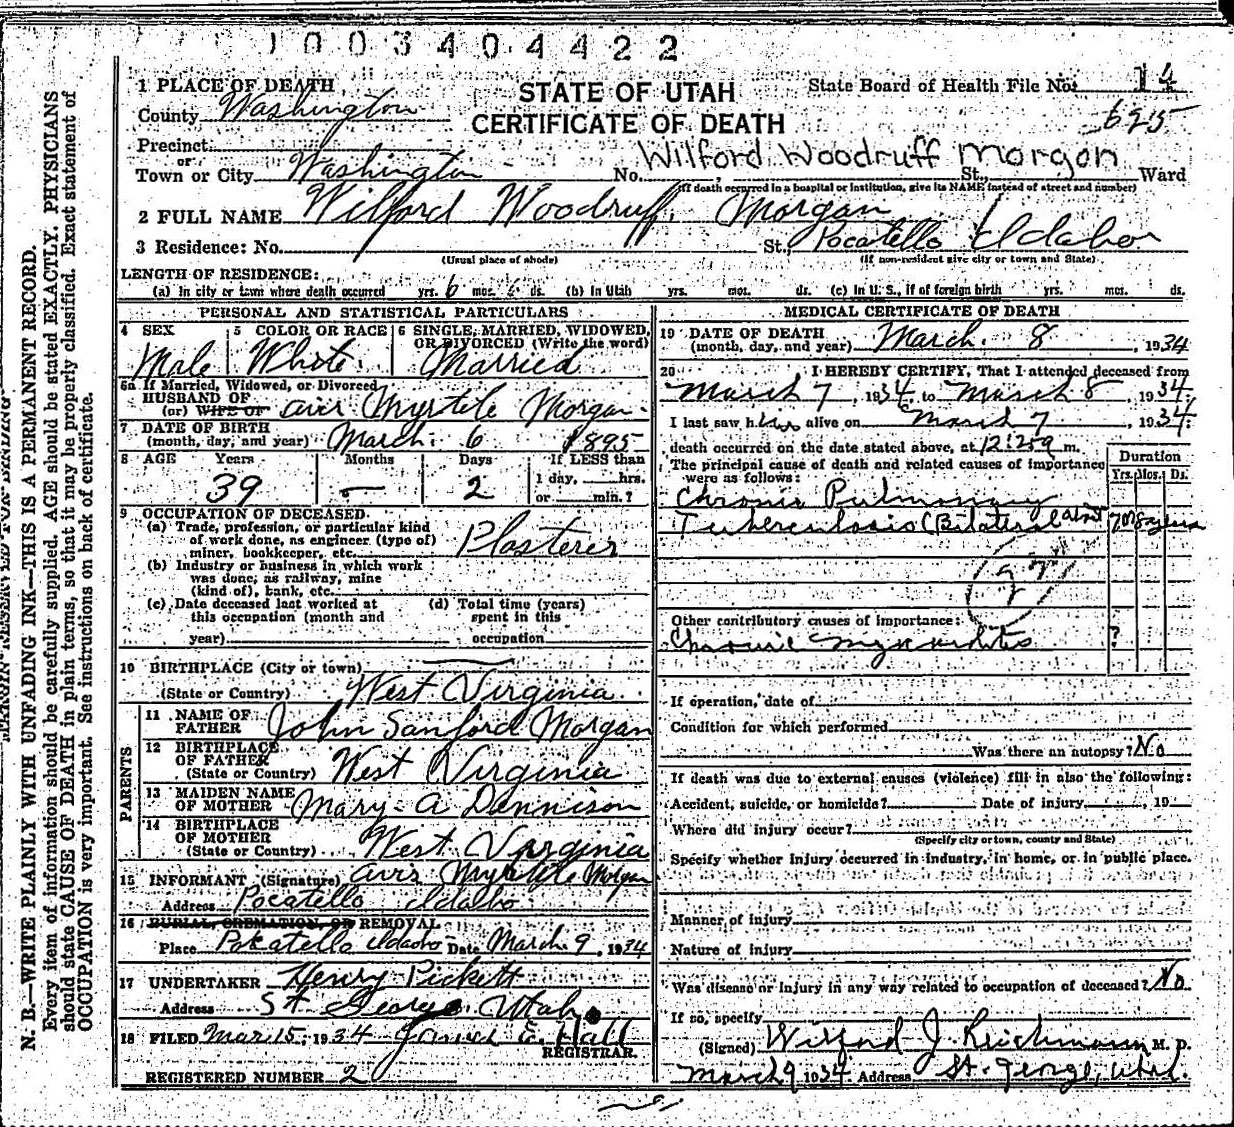 1003404422
1 PLACE OF DEATH
STATE OF UTAH
CERTIFICATE OF DEATH
State Board of Health File No. 14
625
County Washington
Precinct
or
Town or City Washington No. St., Ward
Wilford Woodruff Morgan
(If death occurred in a hospital or institution, give its NAME instead of street and number)
2 FULL NAME Wilford Woodruff Morgan
3 Residence: No. St., Pocatello Idaho
(Usual place of abode) (If non-resident give city or town and State)
LENGTH OF RESIDENCE:
(a) In city or town where death occurred yrs. 6 mos. ds. (b) In Utah yrs. mos. ds. (c) In U. S., if of foreign birth yrs. mos. ds.
PERSONAL AND STATISTICAL PARTICULARS
4 SEX 5 COLOR OR RACE 6 SINGLE, MARRIED, WIDOWED, OR DIVORCED (Write the word)
Male White Married
6a If Married, Widowed, or Divorced
HUSBAND OF
(or) WIFE OF Avis Myrtile Morgan
7 DATE OF BIRTH
(month, day, and year) March 6 1895
8 AGE Years Months Days If LESS than
1 day, hrs.
or min.?
39 — 2
9 OCCUPATION OF DECEASED
(a) Trade, profession, or particular kind
of work done, as engineer (type of)
miner, bookkeeper, etc. Plasterer
(b) Industry or business in which work
was done, as railway, mine
(kind of), bank, etc.
(c) Date deceased last worked at
this occupation (month and
year)
(d) Total time (years)
spent in this
occupation
10 BIRTHPLACE (City or town)
(State or Country) West Virginia
PARENTS
11 NAME OF
FATHER John Sanford Morgan
12 BIRTHPLACE
OF FATHER
(State or Country) West Virginia
13 MAIDEN NAME
OF MOTHER Mary A Dennison
14 BIRTHPLACE
OF MOTHER
(State or Country) West Virginia
15 INFORMANT (Signature) Avis Myrtile Morgan
Address Pocatello Idaho
16 BURIAL, CREMATION, OR REMOVAL
Place Pocatello Idaho Date March 9, 1934
17 UNDERTAKER Henry Pickett
Address St George, Utah
18 FILED Mar 15, 1934 James E. Hall
REGISTRAR.
REGISTERED NUMBER 2
MEDICAL CERTIFICATE OF DEATH
19 DATE OF DEATH
(month, day, and year) March 8, 1934
20 I HEREBY CERTIFY, That I attended deceased from
March 7, 1934, to March 8, 1934.
I last saw him alive on March 7, 1934.
death occurred on the date stated above, at m.
The principal cause of death and related causes of importance
were as follows:
Duration
Yrs. Mos. Ds.
Chronic Pulmonary
Tuberculosis (Bilateral
Other contributory causes of importance:
Chronic myocarditis ?
If operation, date of
Condition for which performed
Was there an autopsy? No
If death was due to external causes (violence) fill in also the following:
Accident, suicide, or homicide? Date of injury, 19
Where did injury occur?
(Specify city or town, county and State)
Specify whether injury occurred in industry, in home, or in public place.
Manner of injury
Nature of injury
Was disease or injury in any way related to occupation of deceased? No
If so, specify
(Signed) Wilford J. Reichmann M. D.
March 9 1934 Address St. George, Utah.
N. B.—WRITE PLAINLY WITH UNFADING INK—THIS IS A PERMANENT RECORD.
Every item of information should be carefully supplied. AGE should be stated EXACTLY. PHYSICIANS
should state CAUSE OF DEATH in plain terms, so that it may be properly classified. Exact statement of
OCCUPATION is very important. See instructions on back of certificate.